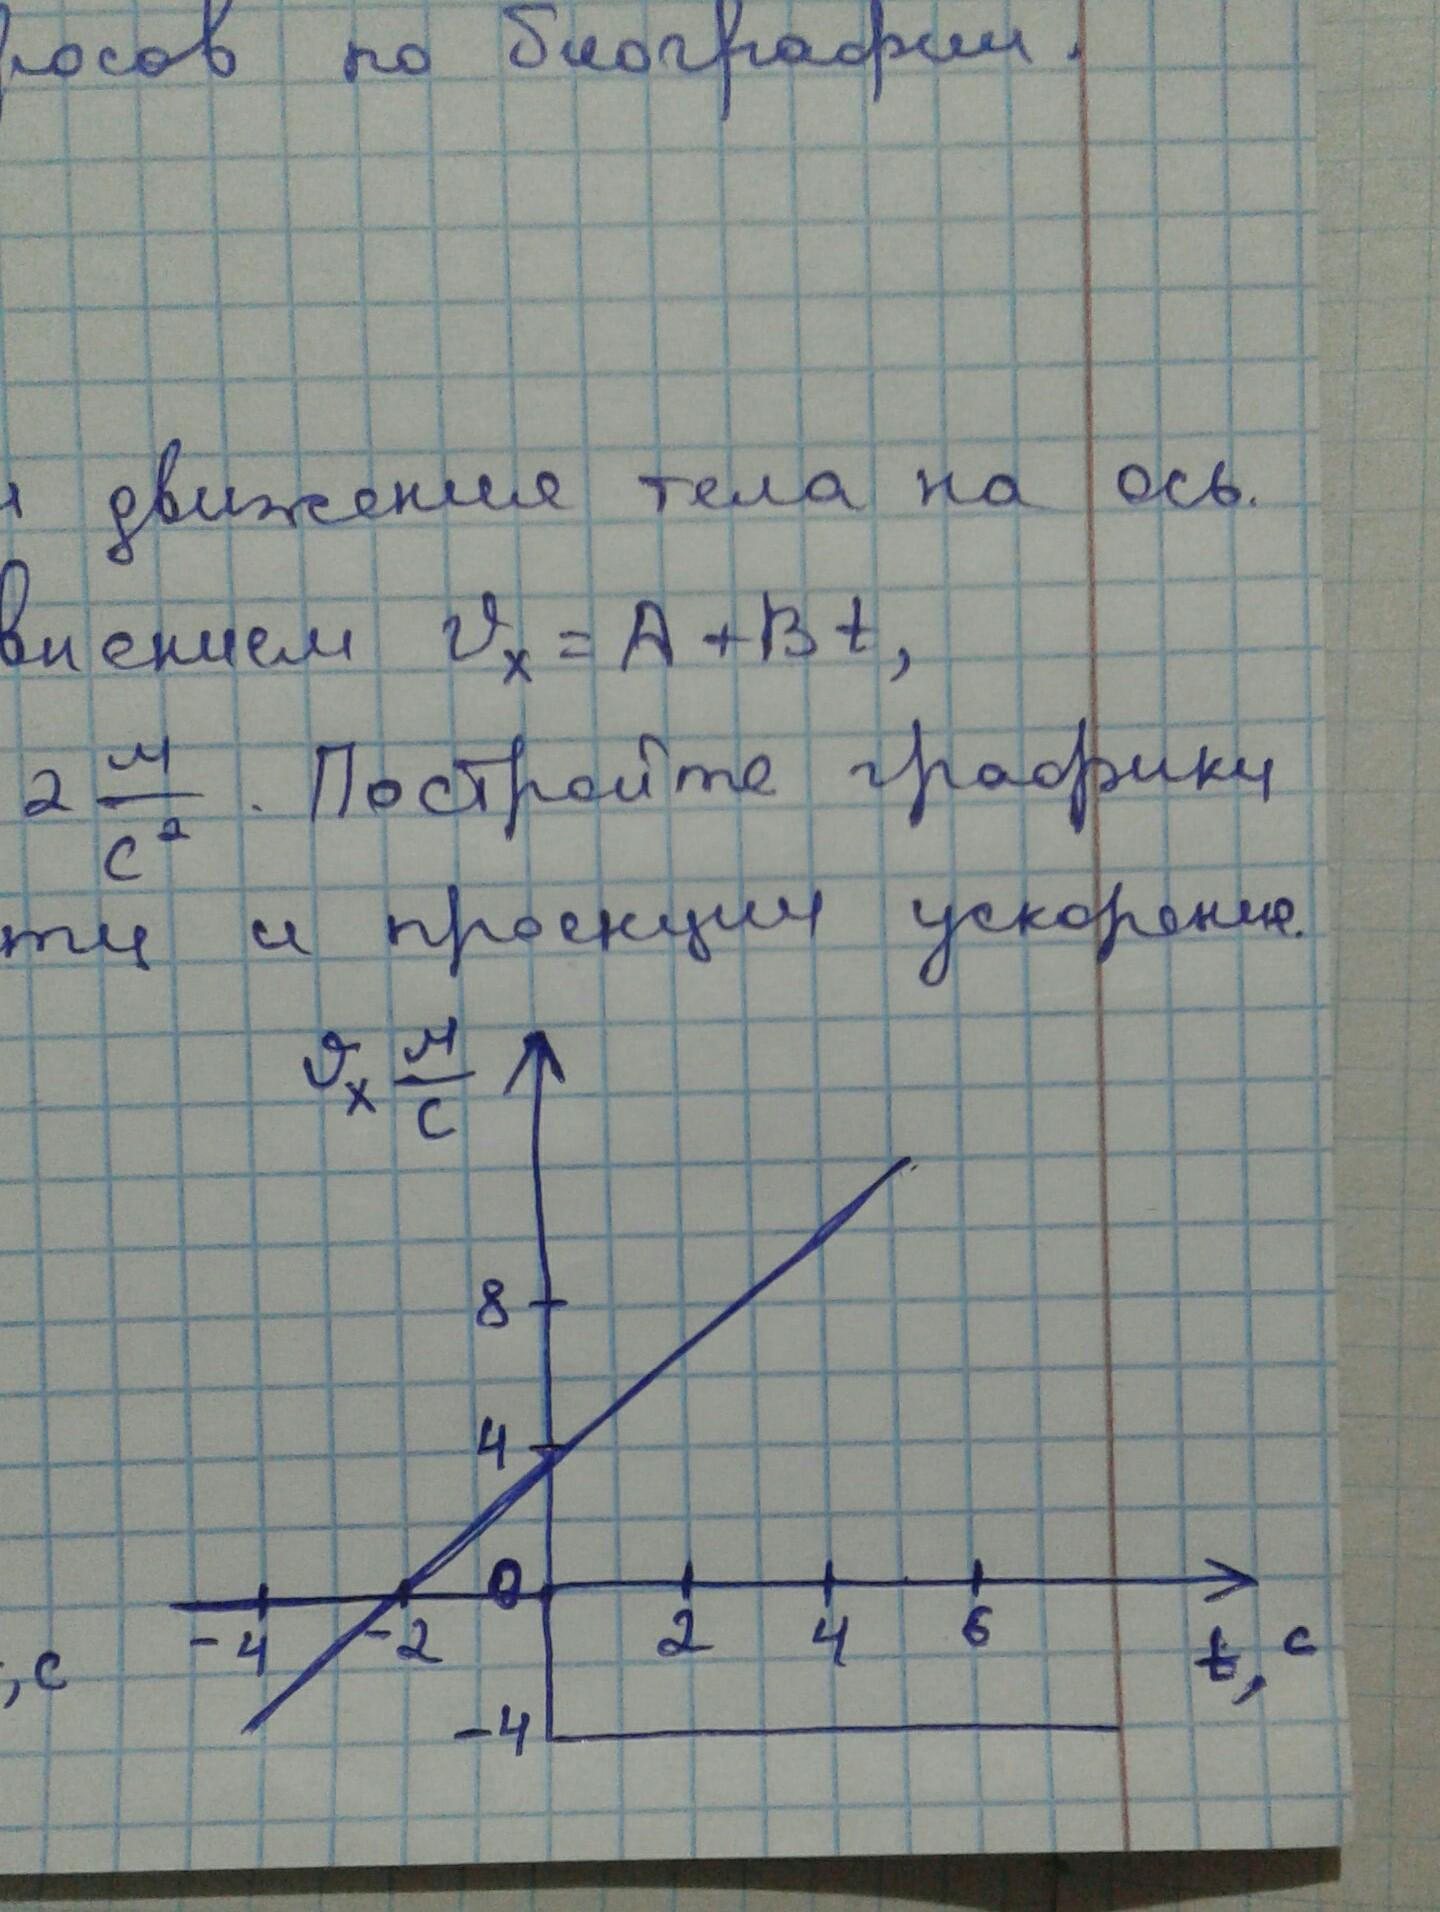 росов по биографии.
и движения тела на ось.
внением υₓ = A + Bt,
2 м/с². Постройте графики
ти и проекции ускорения.
υₓ м/с
8
4
0
-4 -2 2 4 6
t, с
, с
-4